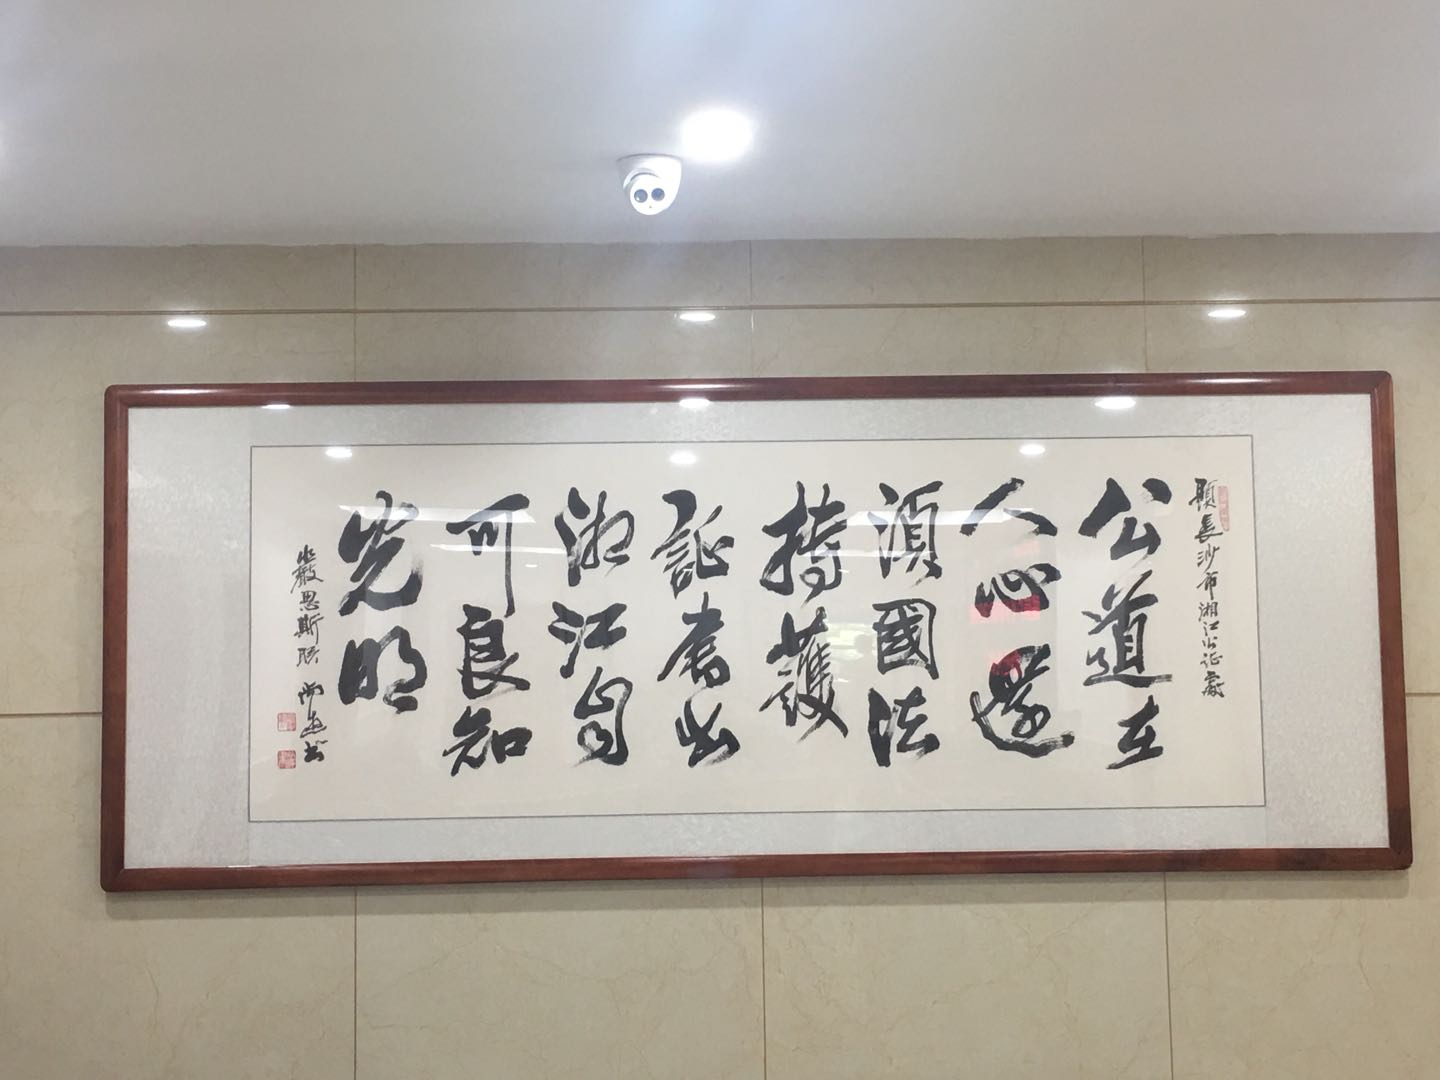 題長沙市湘江公证處
公道在
人心還
湏國法
持護
証書出
湘江自
可良知
光明
嚴思斯联 书